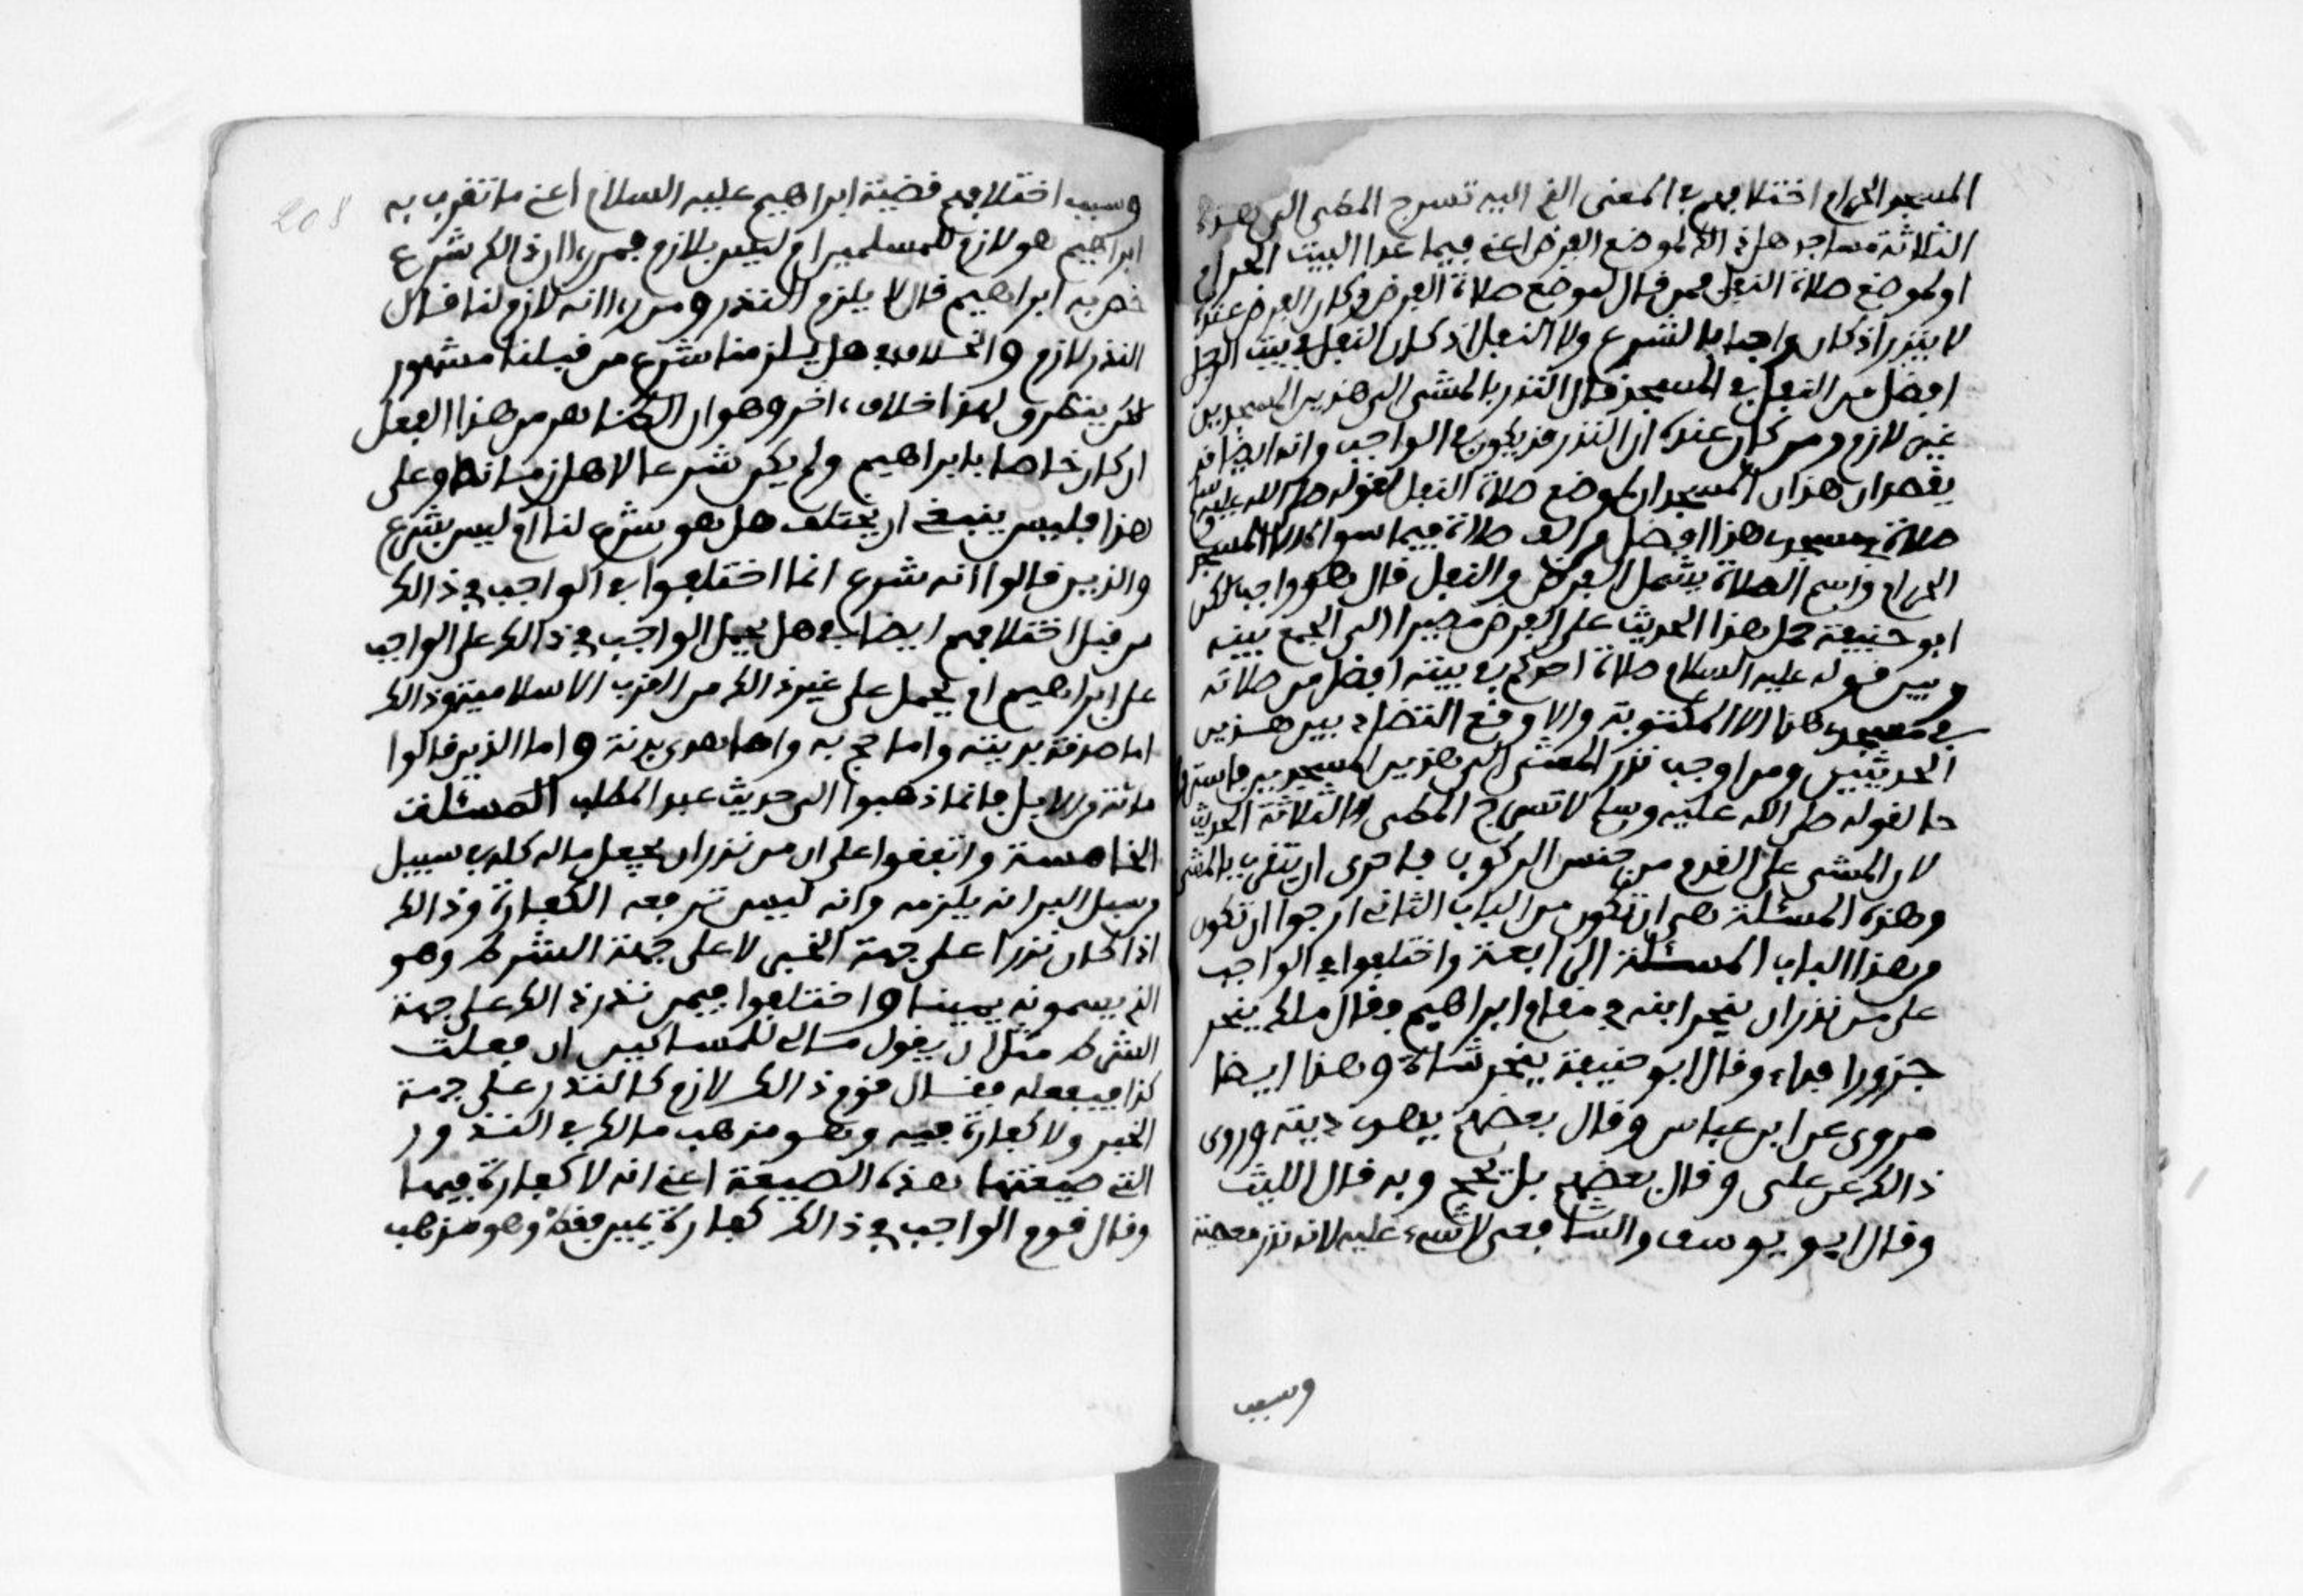 المسجد الحرام اختلافهم في المعنى الذي اليه تسرج المطي الى هذه
الثلاثة مساجد هل ذالك لموضع الفرض اعني فيما عدا البيت الحرام
او لموضع صلاة النفل فمن قال لموضع صلاة الفرض وكان الفرض عنده
لا ينذر اذ كان واجبا بالشرع ولا النفل اذ كان النفل في بيت الرجل
افضل من النفل في المسجد قال النذر بالمشي الى هذين المسجدين
غير لازم ومن كان عنده ان النذر قد يكون في الواجب وانه ايضا قد
يقصد ان هذان المسجدان لموضع صلاة النفل لقوله صلى الله عليه وسلم
صلاة في مسجدي هذا افضل من الف صلاة فيما سواه الا المسجد
الحرام واسم الصلاة يشمل الفرض والنفل قال هو واجب لكن
ابو حنيفة حمل هذا الحديث على الفرض مصيرا الى الجمع بينه
وبين قوله عليه السلام صلاة احدكم في بيته افضل من صلاته
في مسجدي هذا الا المكتوبة والا وقع التضاد بين هذين
الحديثين ومن اوجب نذر المشي الى هذين المسجدين فاسترواحا
حا لقوله صلى الله عليه وسلم لا تسرج المطي الا لثلاثة الحديث
لان المشي على القدم من جنس الركوب فاحرى ان يتقرب بالمشي
وهذه المسئلة هي ان تكون من الباب الثاني ارجوا ان تكون
من هذا الباب المسئلة الرابعة واختلفوا في الواجب
على من نذر ان ينحر ابنه في مقام ابراهيم فقال ملك ينحر
جزورا فداء وقال ابو حنيفة ينحر شاة وهذا ايضا
مروي عن ابن عباس وقال بعضهم يهدي ديته وروى
ذالك عن علي وقال بعضهم بل يحج وبه قال الليث
وقال ابو يوسف والشافعي لا شيء عليه لانه نذر معصية
وسبب
208
وسبب اختلافهم قضية ابراهيم عليه السلام اعني ما تقرب به
ابراهيم هو لازم للمسلمين ام ليس بلازم فمن رءا ان ذالك شرع
خص به ابراهيم قال لا يلزم النذر ومن رءا انه لازم لنا قال
النذر لازم والخلاف في هل يلزمنا شرع من قبلنا مشهور
لكن يتطرق لهذا خلاف ءاخر وهو ان الظاهر من هذا الفعل
ان كان خاصا بابراهيم ولم يكن شرعا لاهل زمانه وعلى
هذا فليس ينبغي ان يختلف هل هو شرع لنا ام ليس بشرع
والذين قالوا انه شرع انما اختلفوا في الواجب في ذالك
من قبل اختلافهم ايضا في هل يحمل الواجب في ذالك على الواجب
على ابراهيم ام يحمل على غير ذالك من القرب الاسلامية وذالك
اما صدقة بديته واما حج به واما هدي بدنة واما الذين قالوا
مائة من الابل فانما ذهبوا الى حديث عبد المطلب المسئلة
الخامسة واتفقوا على ان من نذر ان يجعل ماله كله في سبيل
من سبل البر انه يلزمه وانه ليس ترفعه الكفارة وذالك
اذا كان نذرا على جهة الخبر لا على جهة الشرط وهو
الذي يسمونه يمينا واختلفوا فيمن نذر ذالك على جهة
الشرط مثل ان يقول مالي للمساكين ان فعلت
كذا ففعله فقال قوم ذالك لازم كالنذر على جهة
الخبر ولا كفارة فيه وهو مذهب مالك في النذور
التي صيغتها هذه الصيغة اعني انه لا كفارة فيها
وقال قوم الواجب في ذالك كفارة يمين فقط وهو مذهب